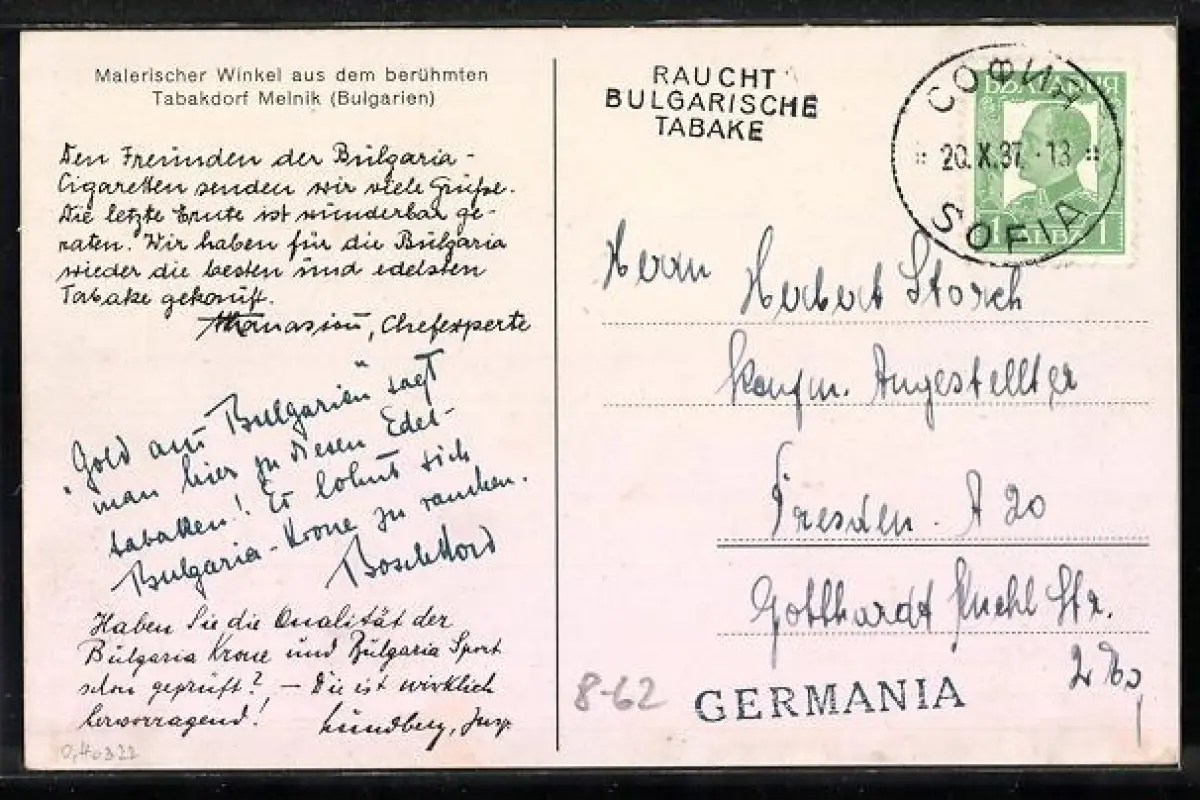 Malerischer Winkel aus dem berühmten
Tabakdorf Melnik (Bulgarien)
Den Freunden der Bulgaria-
Cigaretten senden wir viele Grüße.
Die letzte Ernte ist wunderbar ge-
raten. Wir haben für die Bulgaria
wieder die besten und edelsten
Tabake gekauft.
Athanasiou, Chefexperte
"Gold aus Bulgarien" sagt
man hier zu diesen Edel-
tabaken! Es lohnt sich
Bulgaria-Krone zu rauchen.
Haben Sie die Qualität der
Bulgaria Krone und Bulgaria Sport
schon geprüft? – Die ist wirklich
hervorragend! Lundberg, Insp.
RAUCHT
BULGARISCHE
TABAKE
СОФИЯ
20.X.37.-18
SOFIA
БЪЛГАРИЯ
1 ЛЕВЪ 1
Herrn Herbert Storch
Kaufm. Angestellter
Dresden. A 20
Gotthardt Kuehl Str.
8-62
GERMANIA